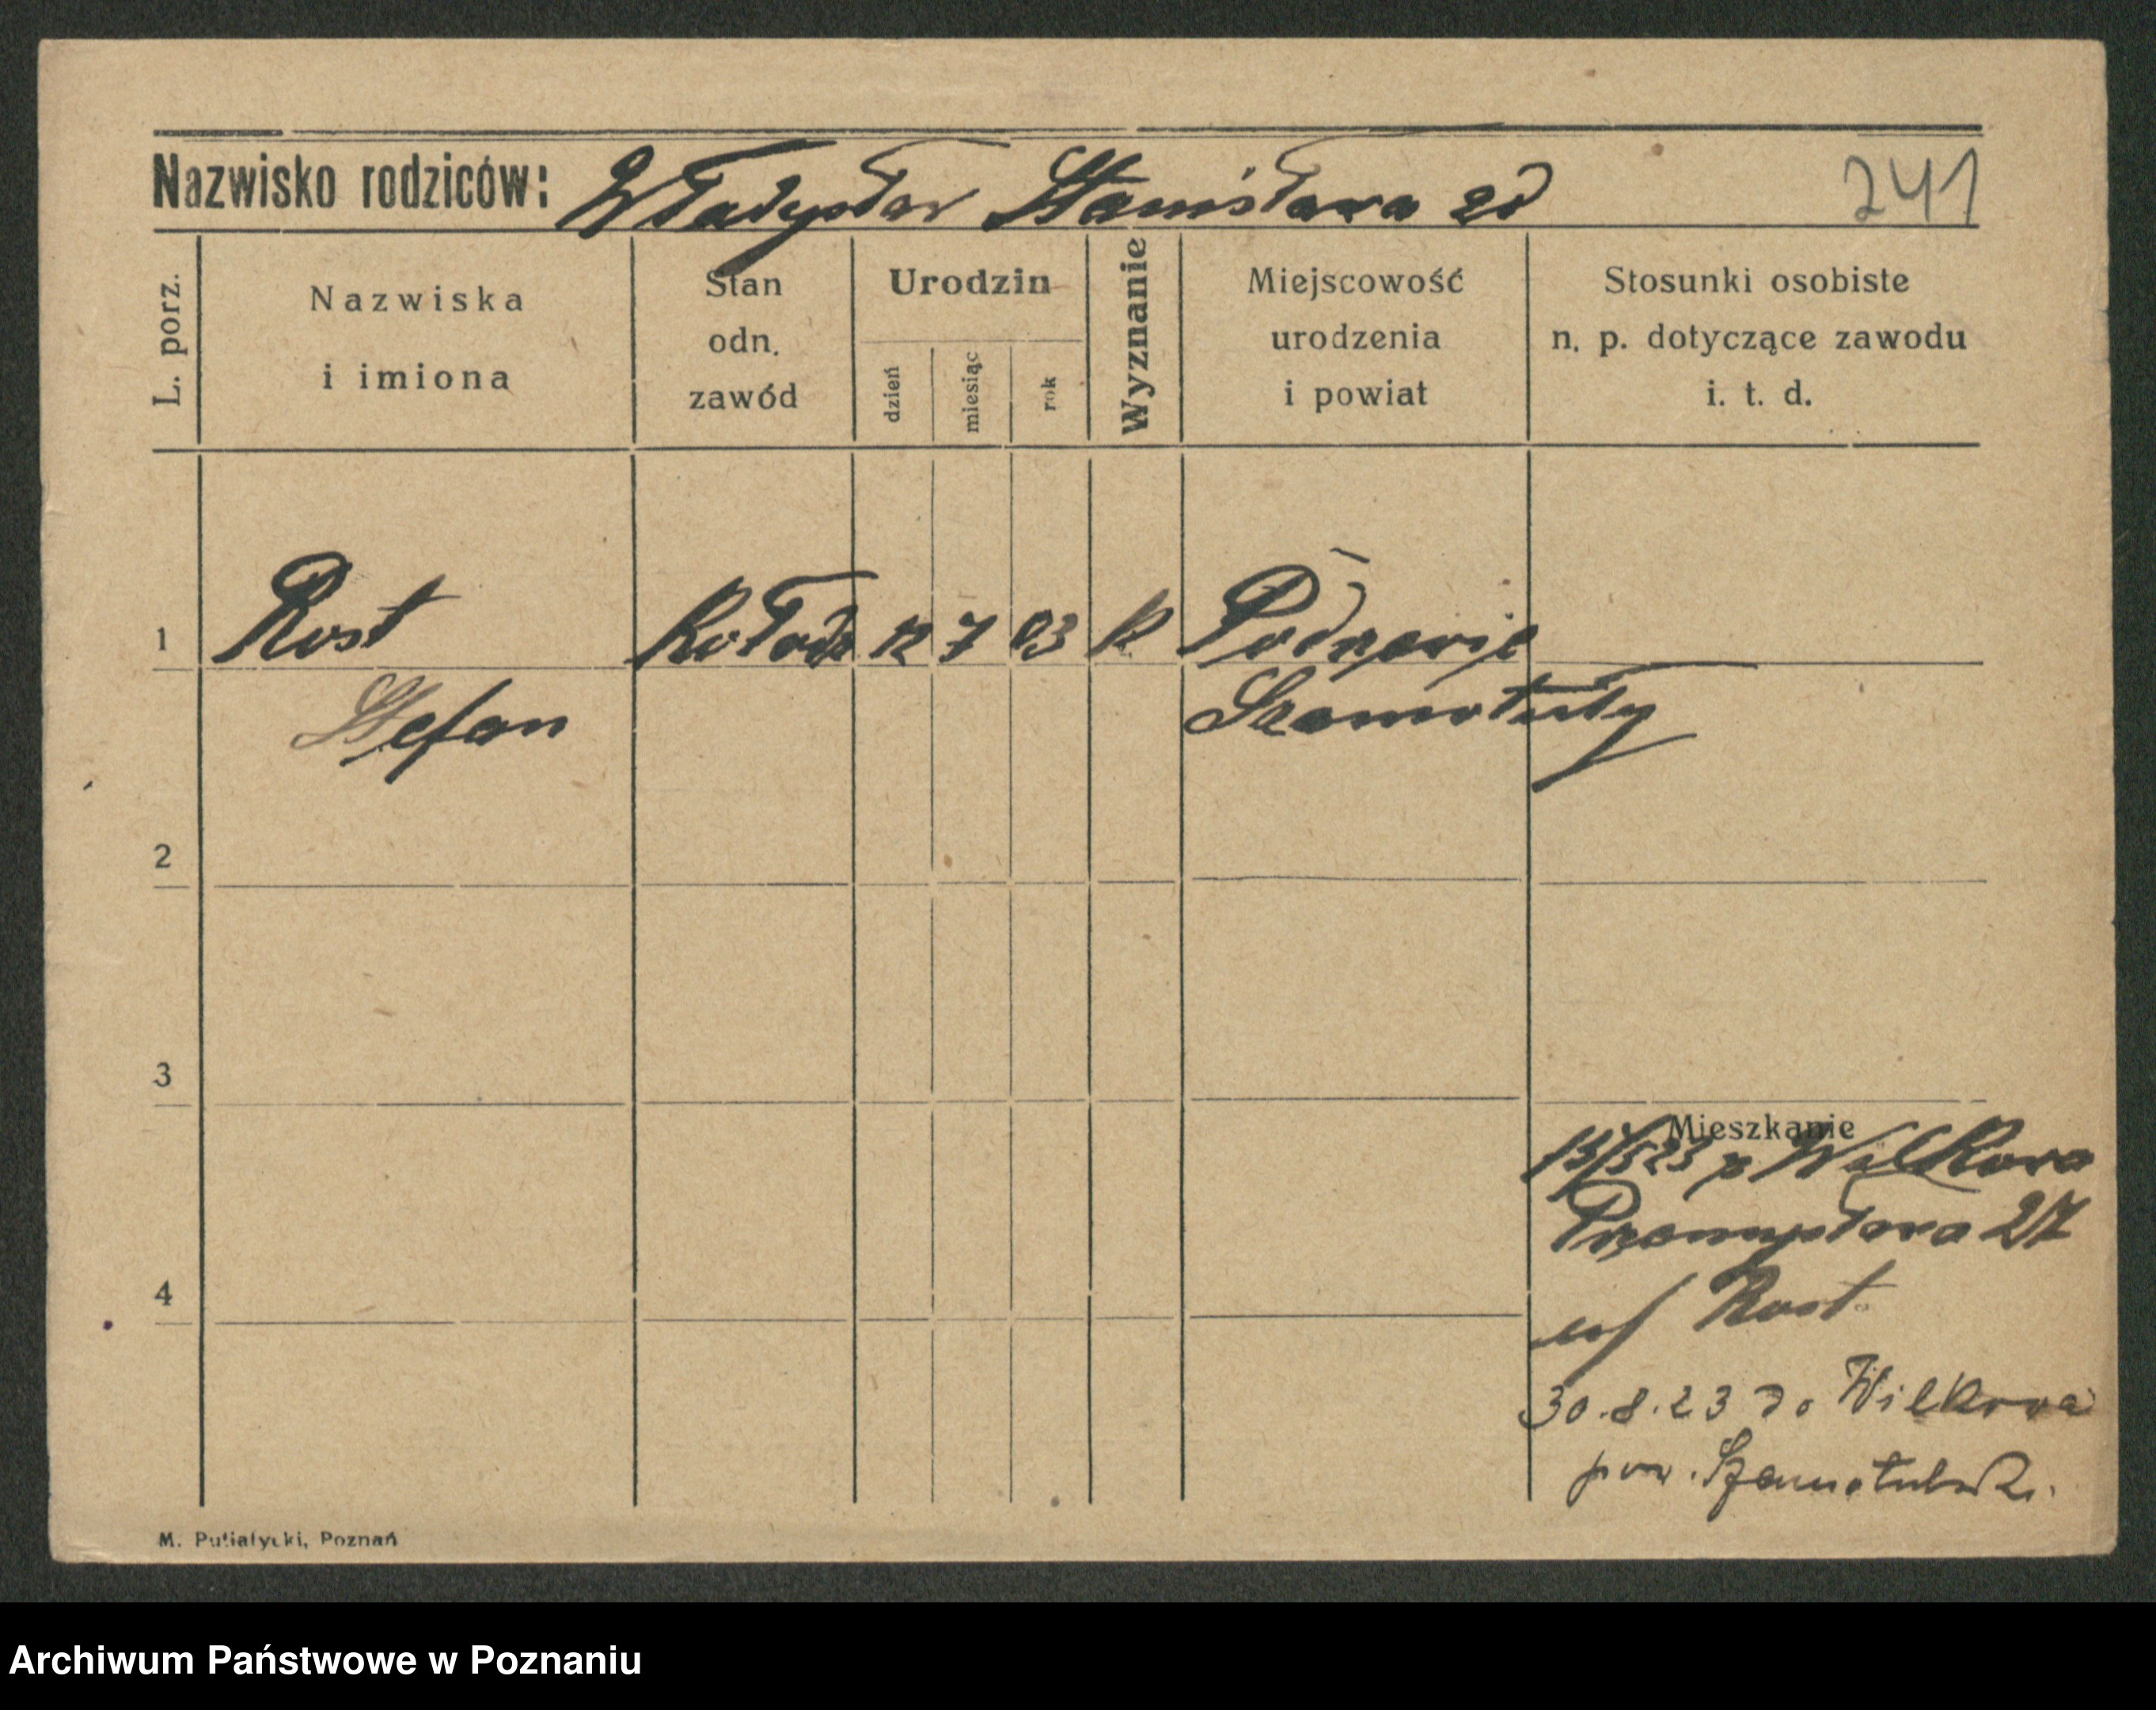 Nazwisko rodziców: Władysław Stanisława zd
241
L. porz.
Nazwiska i imiona
Stan odn. zawód
Urodzin
dzień miesiąc rok
Wyznanie
Miejscowość urodzenia i powiat
Stosunki osobiste n. p. dotyczące zawodu i. t. d.
1 Rost Kołodz 12 7 03 K
Stefan Szamotuły
2
3
Mieszkanie
z Wilkowa
Przemysława 27
4
Rost
30.8.23 do Wilkowa
pow.
M. Putiatycki, Poznań
Archiwum Państwowe w Poznaniu